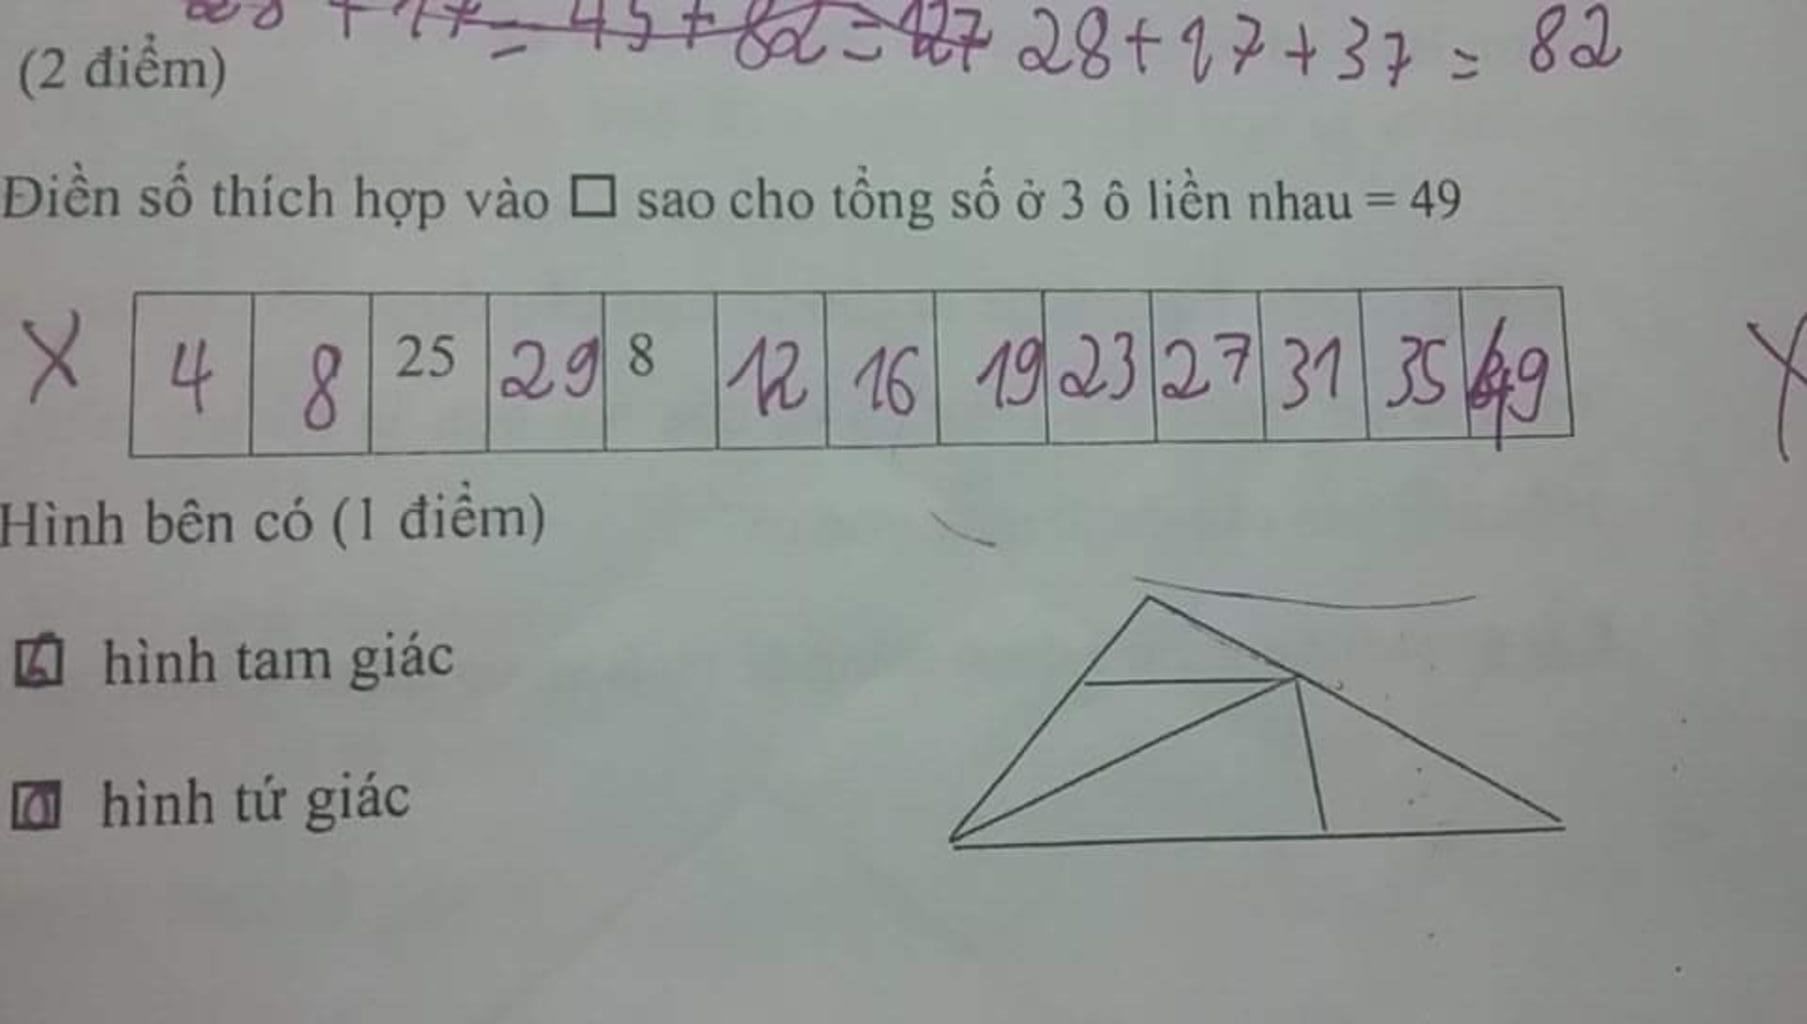 28 + 17 = 45 + 82 = 127 28 + 17 + 37 = 82
(2 điểm)
Điền số thích hợp vào □ sao cho tổng số ở 3 ô liền nhau = 49
X 4 8 25 29 8 12 16 19 23 27 31 35 49
Hình bên có (1 điểm)
hình tam giác
hình tứ giác